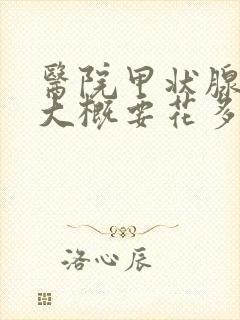 醫院甲状腺
大概要花多
洛心辰